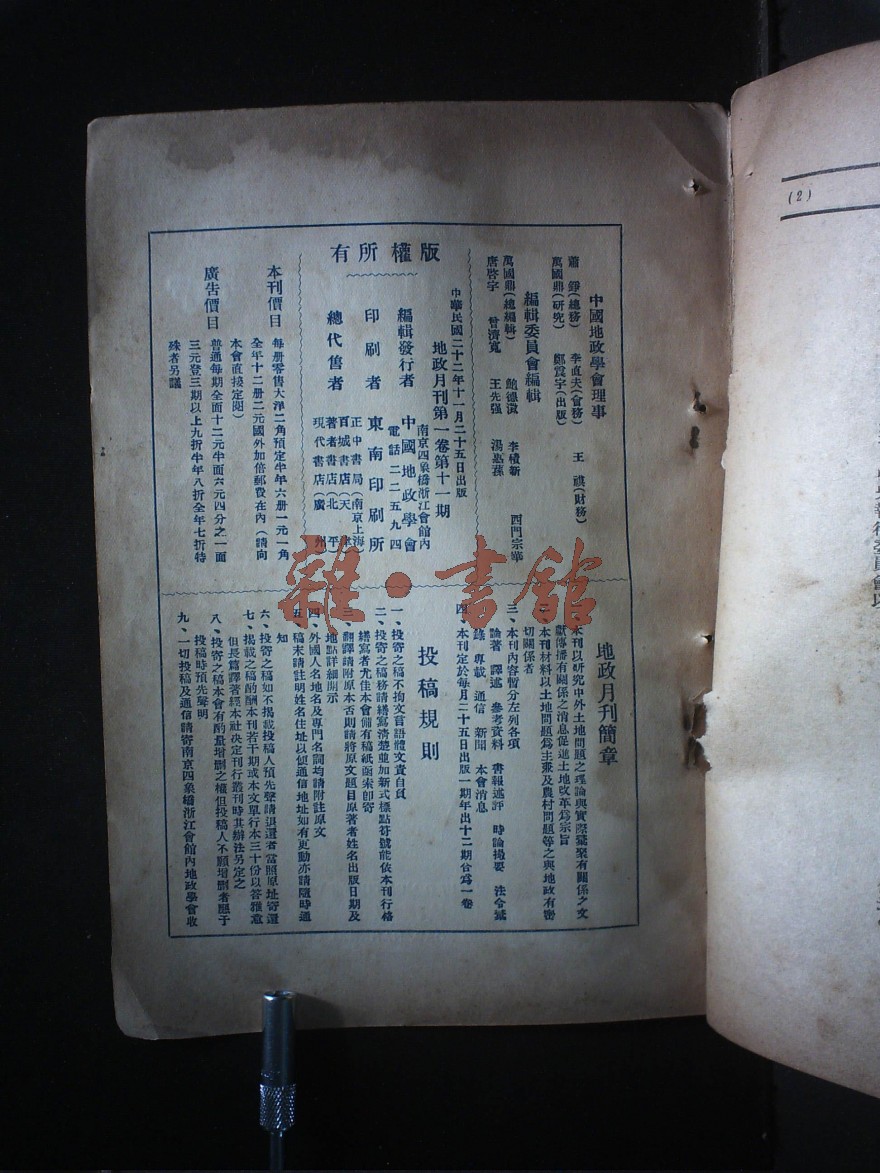 中國地政學會理事
蕭 錚(總務) 李直夫(會務) 王 祺(財務)
萬國鼎(研究) 鄭震宇(出版)
編輯委員會編輯
萬國鼎(總編輯) 鮑德澂 李積新 西門宗華
唐啓宇 曾濟寬 王先强 湯惠蓀
版權所有
中華民國二十二年十一月二十五日出版
地政月刊第一卷第十一期
南京四象橋浙江會館內
編輯發行者 中國地政學會
電話二二五九四
印刷者 東南印刷所
總代售者
正中書局(南京上海)
百城書店(天 津)
著者書店(北 平)
現代書店(廣 州)
本刊價目
每册零售大洋二角預定半年六册一元一角
全年十二册二元國外加倍郵費在內(請向
本會直接定閱)
廣告價目
普通每期全面十二元半面六元四分之一面
三元登三期以上九折半年八折全年七折特
殊者另議
地政月刊簡章
一、本刊以研究中外土地問題之理論與實際蒐聚有關係之文
獻傳播有關係之消息促進土地改革爲宗旨
二、本刊材料以土地問題爲主兼及農村問題等之與地政有密
切關係者
三、本刊內容暫分左列各項
論著 譯述 參考資料 書報述評 時論撮要 法令彙
錄 專載 通信 新聞 本會消息
四、本刊定於每月二十五日出版一期年出十二期合爲一卷
投稿規則
一、投寄之稿不拘文言語體文責自負
二、投寄之稿務請繕寫清楚並加新式標點符號能依本刊行格
繕寫者尤佳本會備有稿紙函索卽寄
三、翻譯請附原本否則請將原文題目原著者姓名出版日期及
地點詳細開示
四、外國人名地名及專門名詞均請附註原文
五、稿末請註明姓名住址以便通信地址如有更動亦請隨時通
知
六、投寄之稿如不揭載投稿人預先聲請退還者當照原址寄還
七、揭載之稿酌酬本刊若干期或本文單行本三十份以答雅意
但長篇譯著經本社決定刊行叢刊時其辦法另定之
八、投寄之稿本會有酌量增删之權但投稿人不願增删者應于
投稿時預先聲明
九、一切投稿及通信請寄南京四象橋浙江會館內地政學會收
雜·書館
(2)